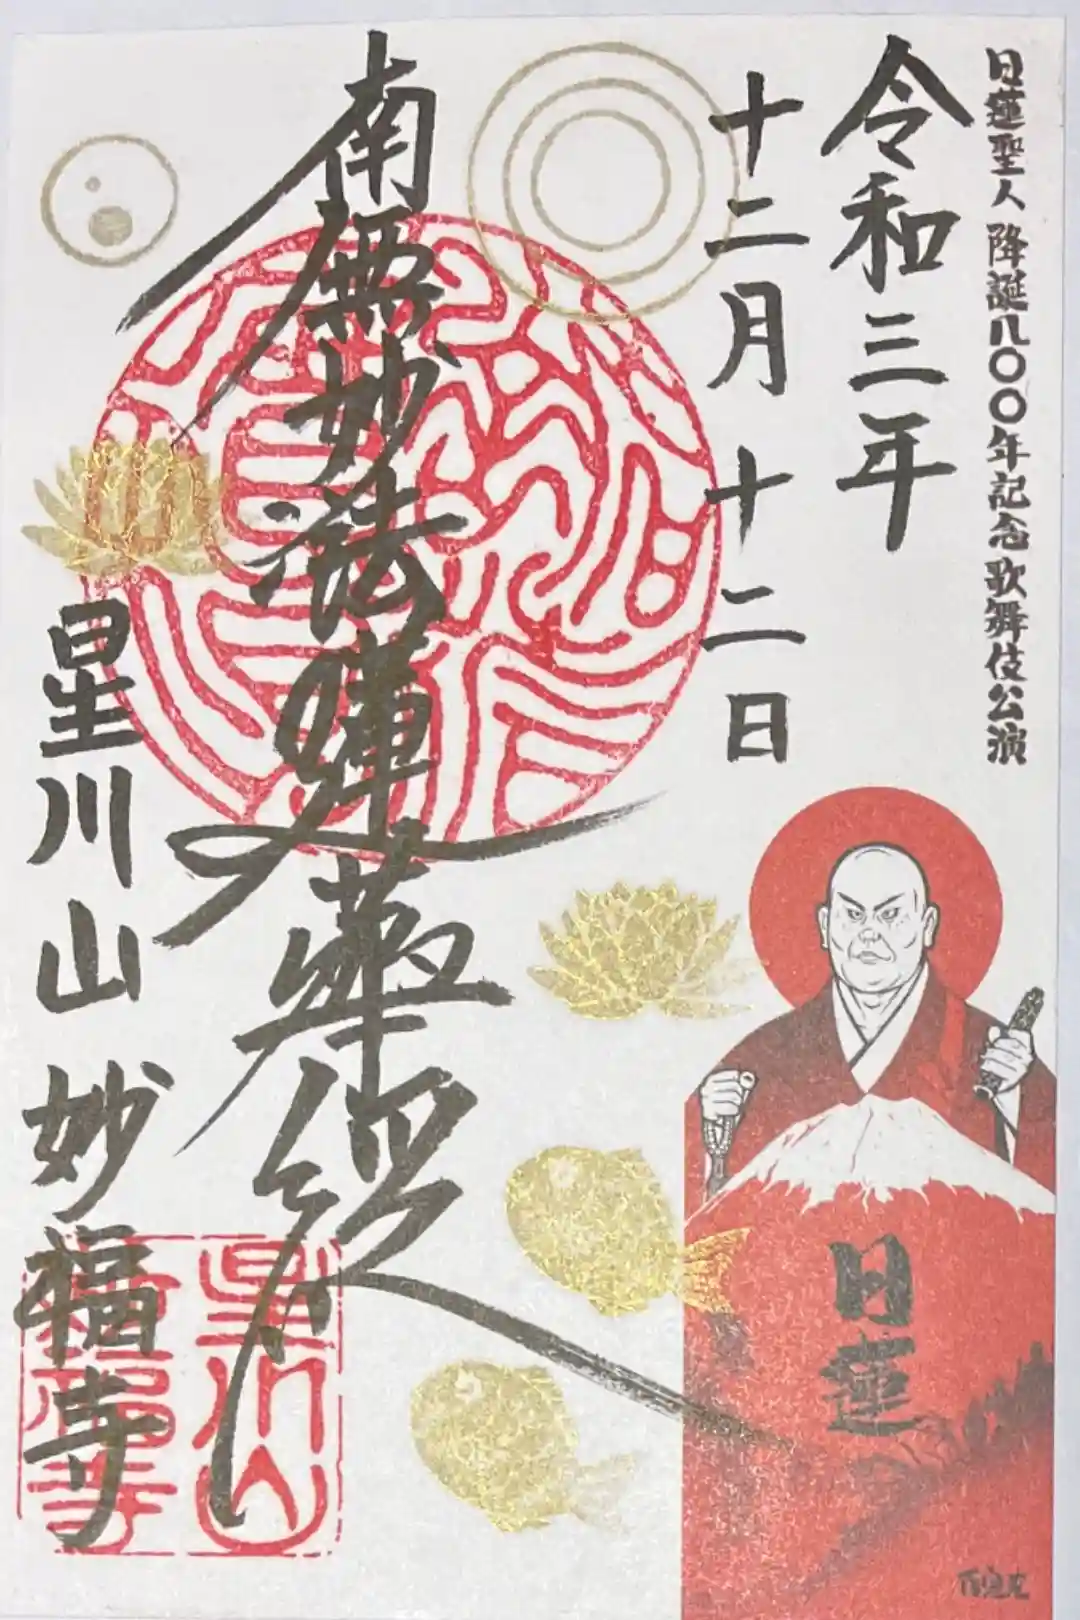 日蓮聖人 降誕八〇〇年記念歌舞伎公演
令和三年
十二月十二日
南無妙法蓮華経
星川山 妙福寺
星川山
妙福寺
日蓮